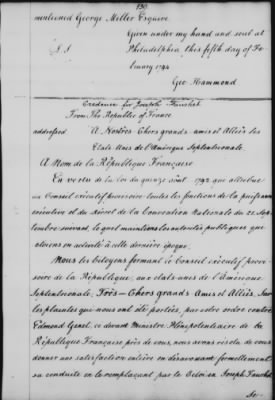 130.
mentioned George Miller Esquire
Given under my hand and seal at
L S Philadelphia this fifth day of Fe
bruary 1794
Geo: Hammond
Credence for Joseph Fauchet
From The Republic of France
addressed A Nostres Chers grands amis et Alliés les
Etats Unis de l'Amérique Septentrionale.
A Nom de la République Française
En vertu de la Loi du quinze août 1792 que attribue
au Conseil exécutif provisoire toutes les fonctions de la puissance
exécutive et du Décret de la Convention Nationale du 21 Sep-
tembre suivant, le quel maintient les autorités publiques que
étoient en activité à cette dernière époque.
Nous les citoyens formant le Conseil exécutif provi-
soire de la République, aux états unis de l'Amérique
Septentrionale, Très-Chers grands Amis et Alliés, Sur
les plaintes qui nous ont été portées, par votre ordre contre
Edmond Genet, ci devant Ministre Plénipotentiaire de la
République Française près de vous, nous avons résolu de vous
donner une satisfaction entière en désavouant formellement
sa conduite en le remplaçant par le Citoien Joseph Fauchet